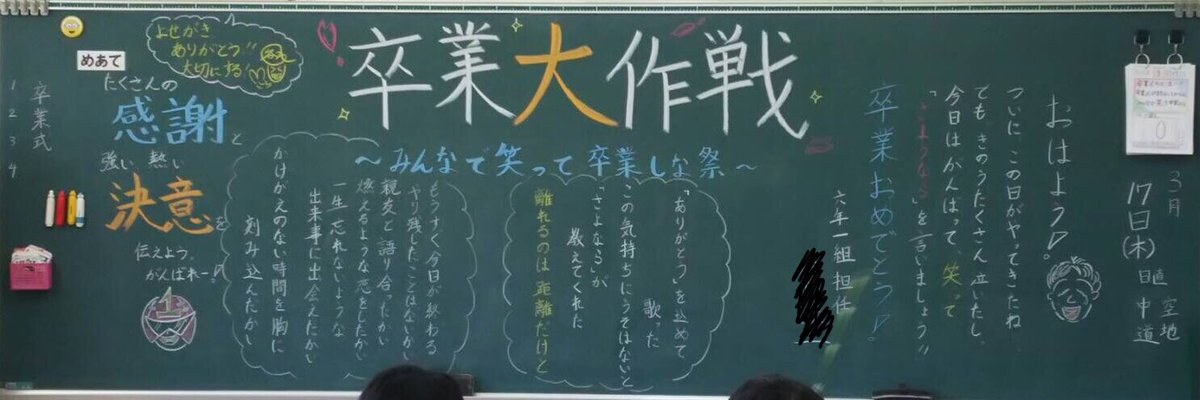 卒業大作戦
〜みんなで笑って卒業しな祭〜
3月
17日(木)
日直
空地
中道
おはよう♪
ついに この日がやってきたね
でも きのうたくさん泣いたし、
今日はがんばって、笑って
「さようなら」を言いましょう!!
卒業おめでとう♪
六年一組担任
「ありがとう」を込めて
歌った
この気持ちにうそはないと
「さよなら」が
教えてくれた
離れるのは距離だけと
もうすぐ今日が終わる
やり残したことはないか
親友と語り合ったかい
燃えるような恋をしたかい
一生忘れないような
出来事に出会えたかい
かけがえのない時間を胸に
刻み込んだかい
よせがき
ありがとう!!
大切にする!
めあて
たくさんの
感謝と
強い、熱い
決意を
伝えよう。
がんばれー♪
1
卒業式
1
2
3
4
0